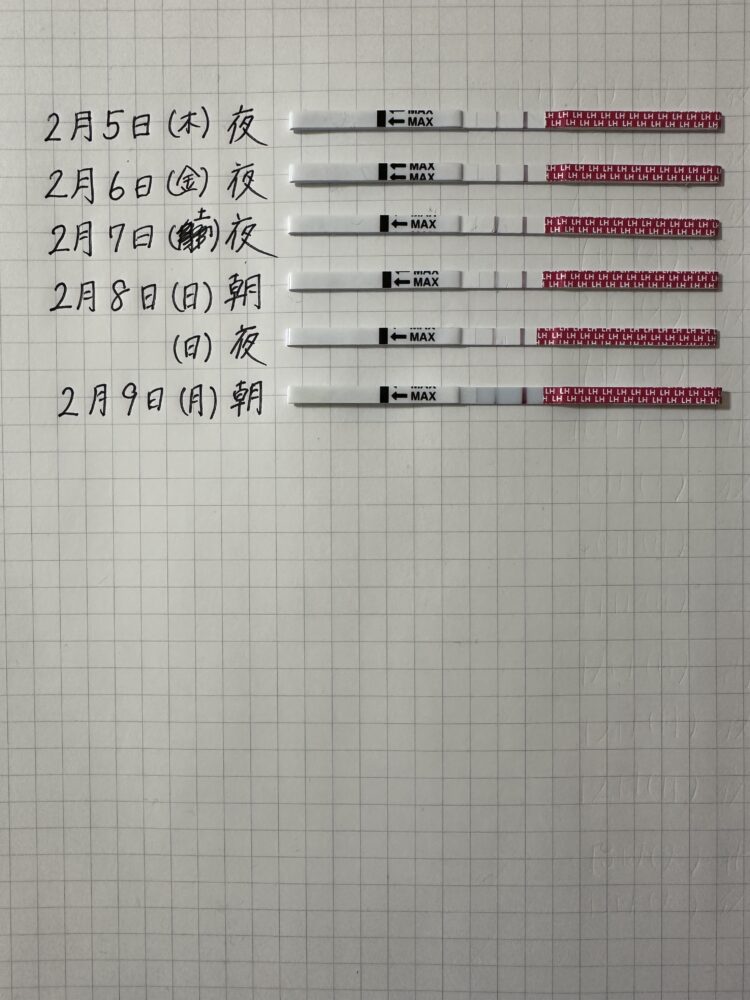 2月5日(木)夜 MAX MAX LH LH LH LH LH LH LH LH LH LH LH LH
2月6日(金)夜 MAX MAX LH LH LH LH LH LH LH LH LH LH LH LH
2月7日(土)夜 MAX LH LH LH LH LH LH LH LH LH LH LH LH
2月8日(日)朝 MAX MAX LH LH LH LH LH LH LH LH LH LH LH LH
(日)夜 MAX LH LH LH LH LH LH LH LH LH LH LH LH
2月9日(月)朝 MAX LH LH LH LH LH LH LH LH LH LH LH LH